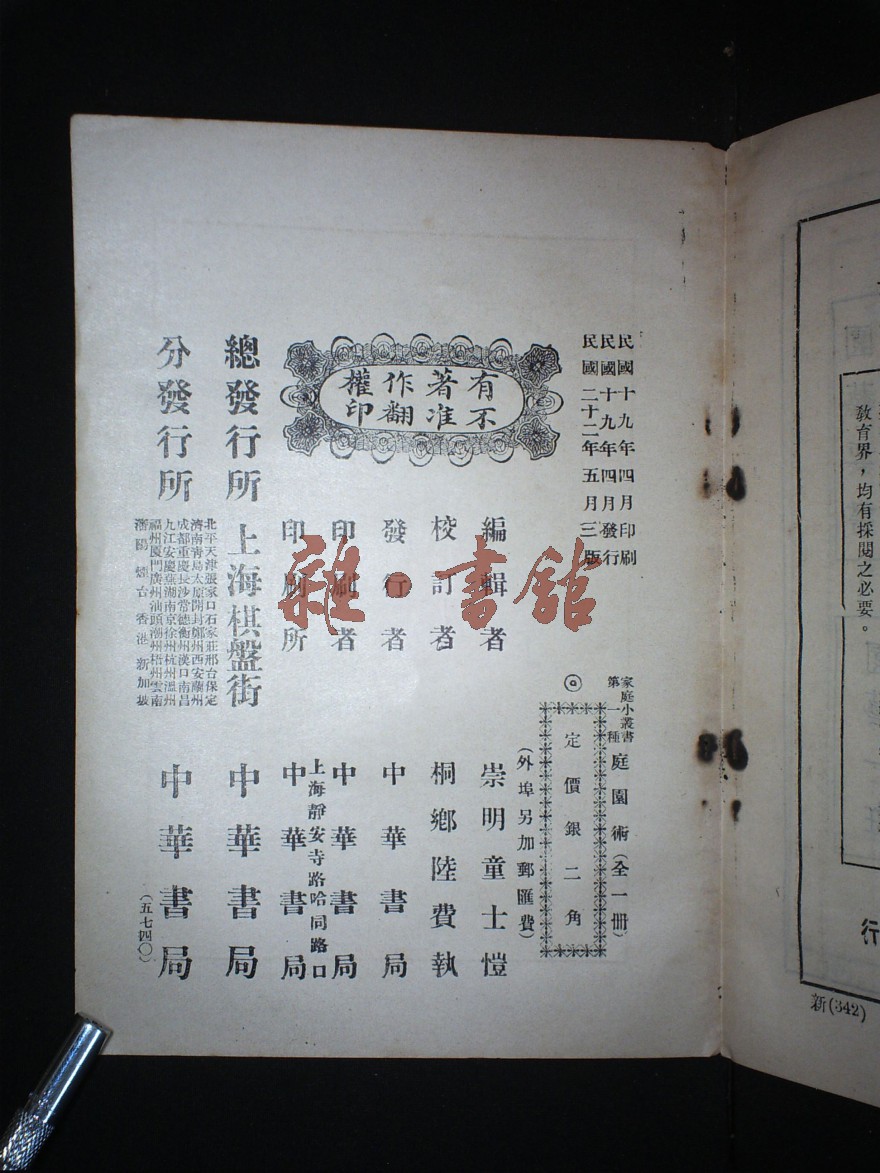 教育界，均有採閱之必要。
新(342)
民國十九年四月印刷
民國十九年四月發行
民國二十二年五月三版
家庭小叢書
第一種
庭園術(全一冊)
◎
定價銀二角
(外埠另加郵匯費)
有著作權
不准翻印
編輯者 崇明童士愷
校訂者 桐鄉陸費執
發行者 中華書局
印刷者 中華書局
印刷所 上海靜安寺路哈同路口
中華書局
總發行所 上海棋盤街 中華書局
分發行所 中華書局
北平天津張家口石家莊邢台保定
濟南青島太原開封鄭州西安蘭州
成都重慶長沙常德衡州漢口南昌
九江安慶蕪湖南京徐州杭州溫州
福州廈門廣州汕頭潮州梧州雲南
瀋陽 煙台 香港 新加坡
(五七四〇)
雜·書館